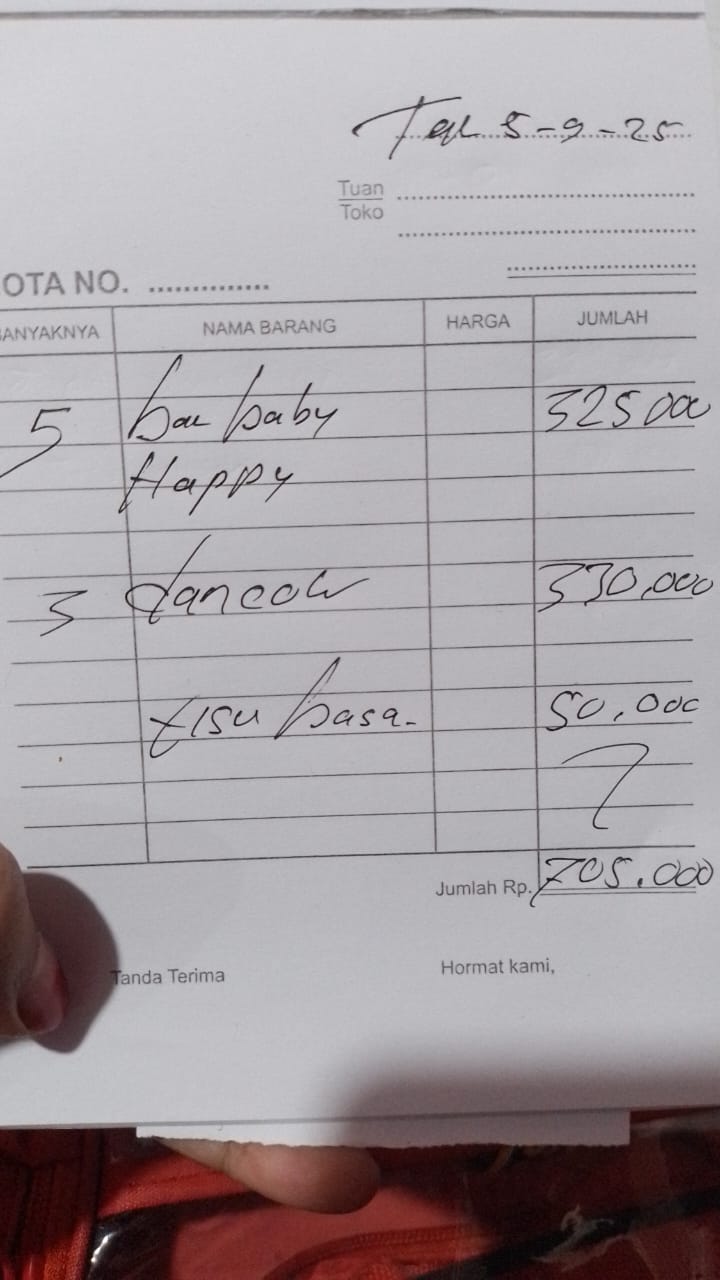 Tgl 5-9-25
Tuan
Toko
OTA NO. ..............
ANYAKNYA NAMA BARANG HARGA JUMLAH
5 baby 325000
Happy
3 dancow 330,000
tisu basa. 50.000
Jumlah Rp. 705.000
Tanda Terima Hormat kami,